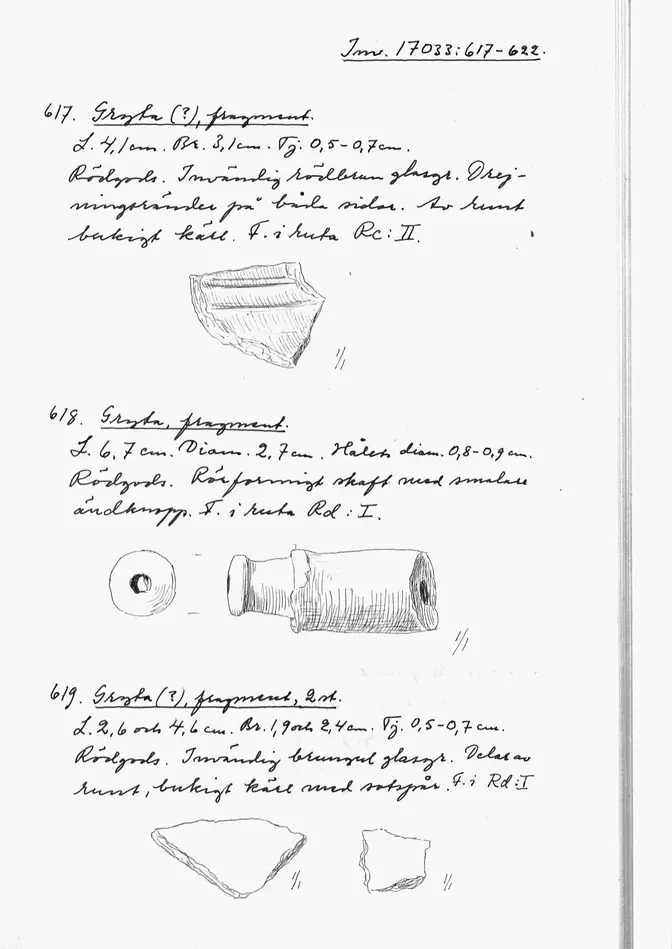 Inv. 17033:617-622.
617. Gryta (?), fragment.
L. 4,1 cm. Br. 3,1 cm. Tj. 0,5-0,7 cm.
Rödgods. Invändig rödbrun glasyr. Drej-
ningsränder på båda sidor. Av runt
bukigt kärl. F. i ruta Rc: II.
1/1
618. Gryta, fragment.
L. 6,7 cm. Diam. 2,7 cm. Hålets diam. 0,8-0,9 cm.
Rödgods. Rörformigt skaft med smalare
ändknopp. F. i ruta Rd: I.
1/1
619. Gryta (?), fragment, 2 st.
L. 2,6 och 4,6 cm. Br. 1,9 och 2,4 cm. Tj. 0,5-0,7 cm.
Rödgods. Invändig brungul glasyr. Delar av
runt, bukigt kärl med sotspår. F. i Rd: I
1/1 1/1